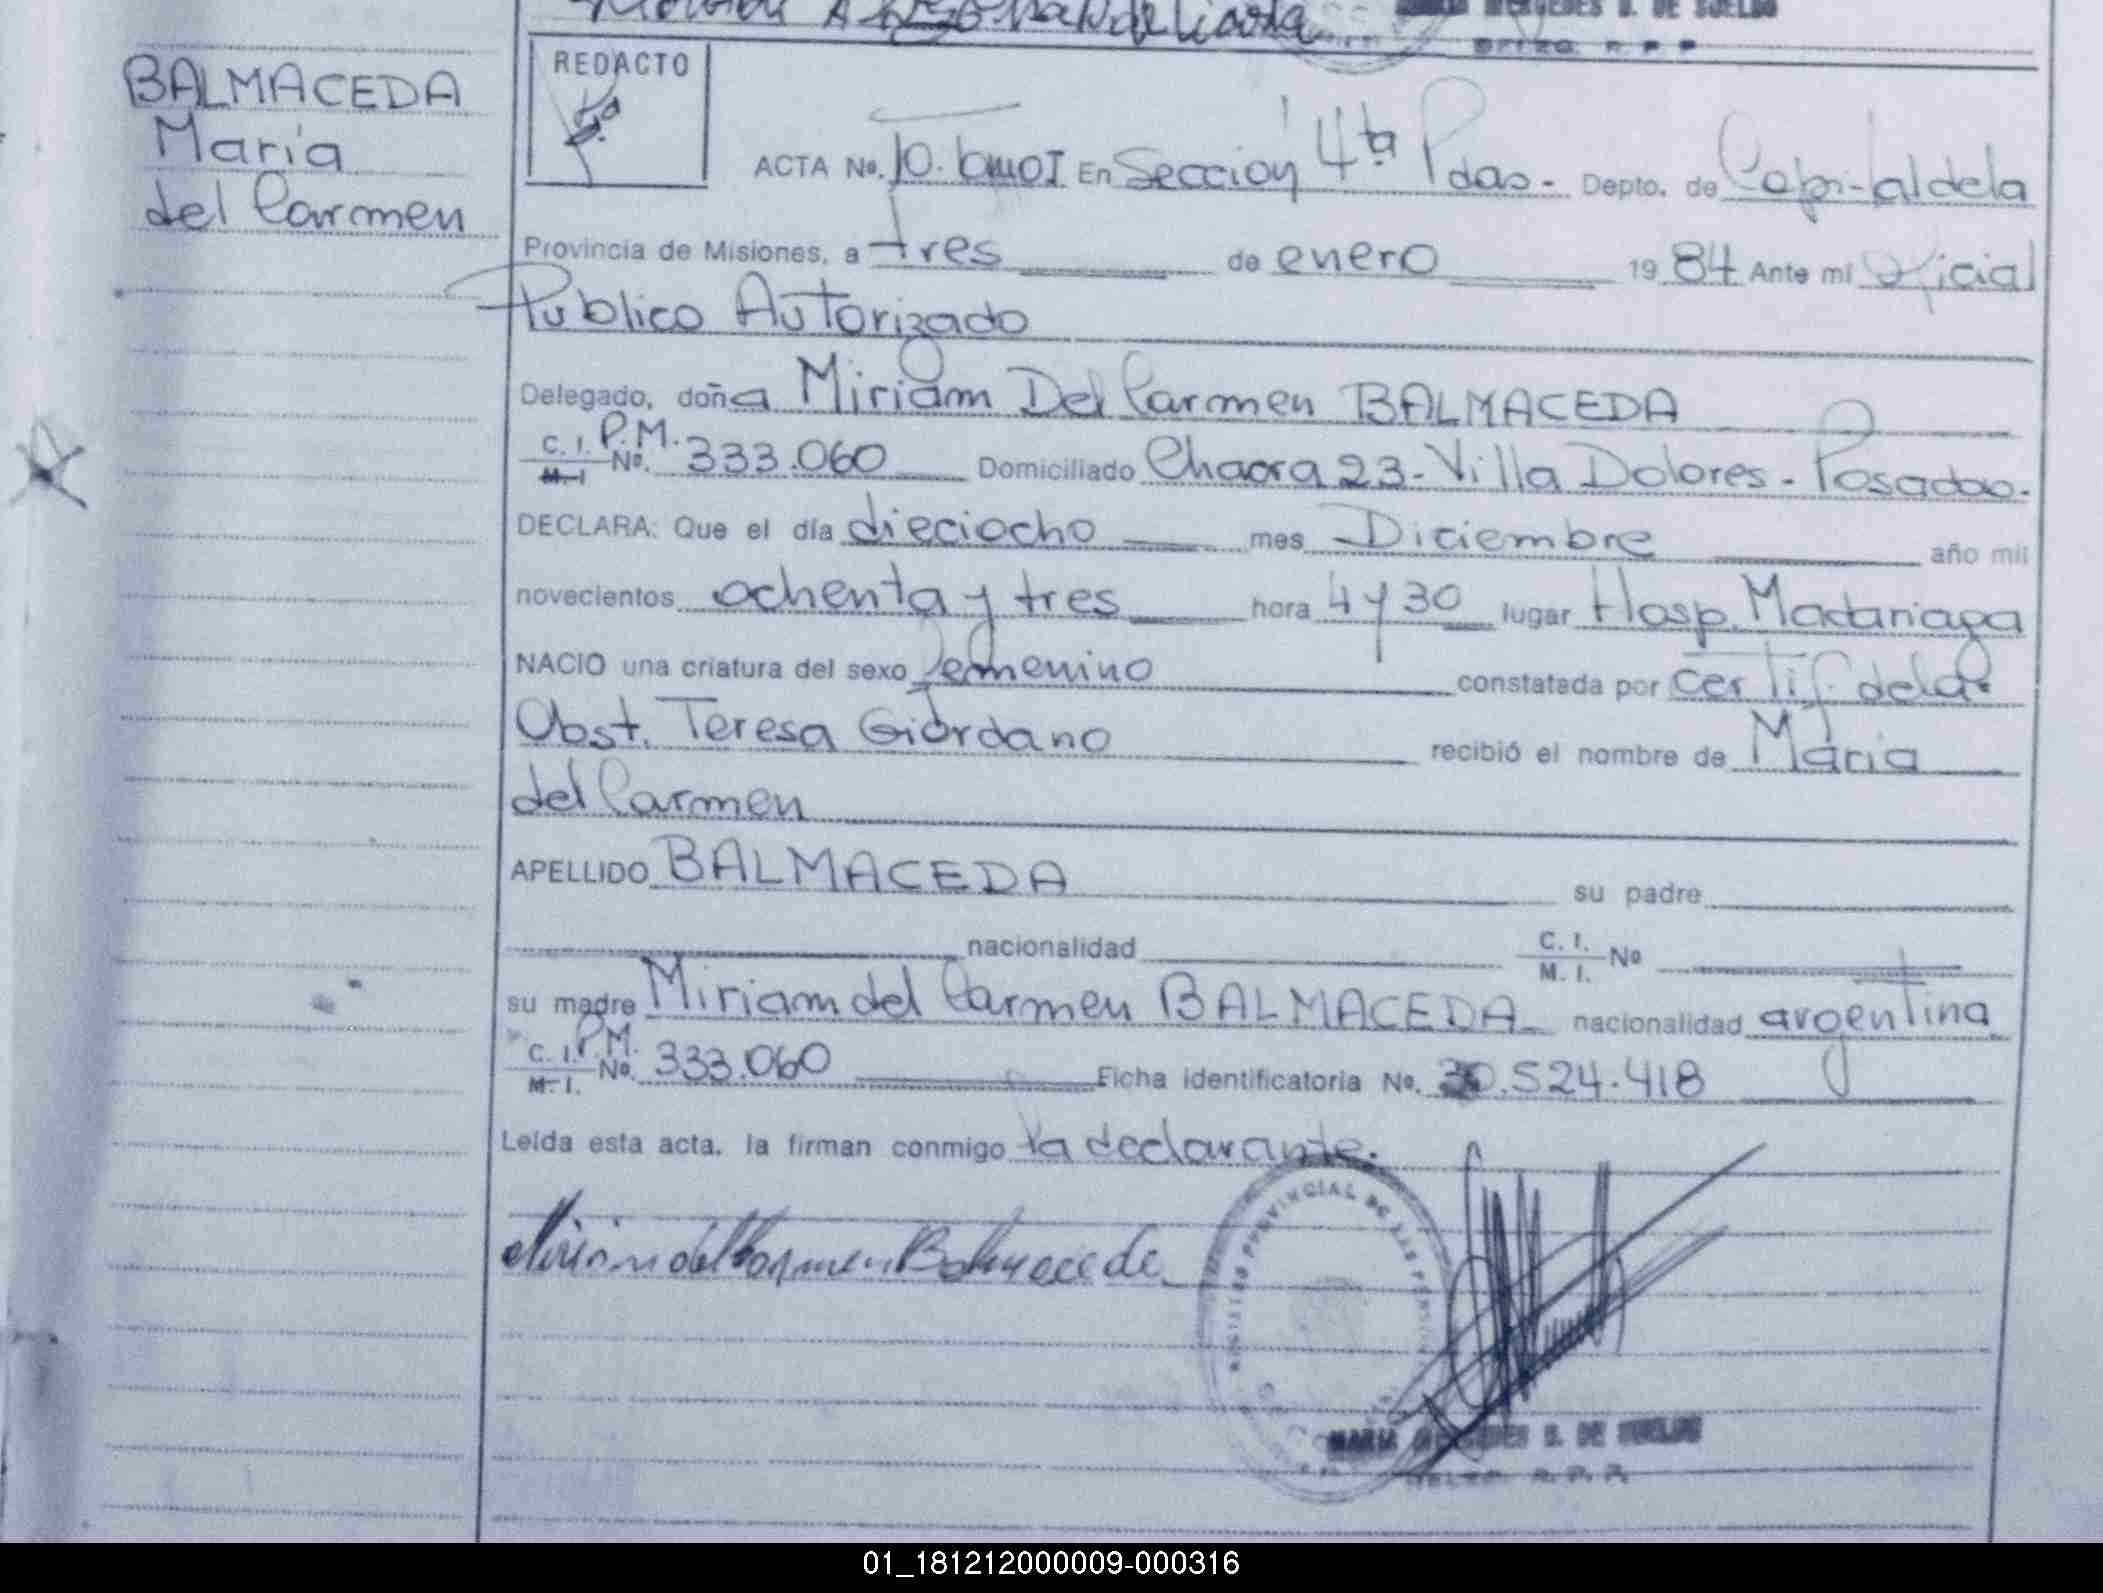 MARIA MERCEDES S. DE SUELDO
BALMACEDA
María
del Carmen
REDACTO
ACTA No. 10. Tomo I En Sección 4ta Pdas. Depto. de Capital de la
Provincia de Misiones, a tres de enero 1984 Ante mi Oficial
Público Autorizado
Delegado, doña Miriam Del Carmen BALMACEDA
C. I. P.M.
M. I No. 333.060 Domiciliado Chacra 23 - Villa Dolores - Posadas.
DECLARA: Que el día dieciocho mes Diciembre año mil
novecientos ochenta y tres hora 4 y 30 lugar Hosp. Madariaga
NACIO una criatura del sexo femenino constatada por certif. de la
Obst. Teresa Giordano recibió el nombre de María
del Carmen
APELLIDO BALMACEDA su padre
nacionalidad C. I. No
M. I.
su madre Miriam del Carmen BALMACEDA nacionalidad argentina
C. I. P.M.
M. I. No. 333.060 Ficha identificatoria No. 30.524.418
Leída esta acta, la firman conmigo la declarante.
Miriam del Carmen Balmaceda
REGISTRO PROVINCIAL DE LAS PERSONAS
MARIA MERCEDES S. DE SUELDO
R. P. P.
01_181212000009-000316